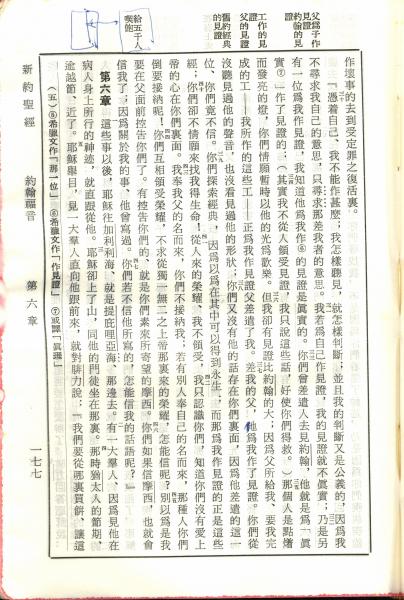 父爲子作
見證
約翰的見
證
工作的見
證
父的見證
舊約經典
的見證
給五千人
喫飽
作壞事的去到受定罪之復活裏。
「憑着自己、我不能作甚麼;我怎樣聽見,就怎樣判斷;並且我的判斷又是公義的,因爲我
不尋求我自己的意思,只尋求那差我者的意思。我若爲自己作見證,我的見證就不眞實;乃是另
有一位爲我作見證,我知道他爲我作⑥的見證是眞實的。你們曾差遣人去見約翰,他就是爲『眞
實⑦』作了見證的;(其實我不從人領受見證,我只說這些話,好使你們得救。)那個人是點燈
而發亮的燈,你們情願暫時以他的光爲歡樂。但我卻有見證比約翰的大;因爲父所給我、要我完
成的工——我所作的這些工——正爲我作見證父差遣了我。差我的父、他爲我作了見證。你們從
沒聽見過他的聲音,也沒看見過他的形狀;你們又沒有他的話存在你們裏面,因爲他差遣的這一
位、你們竟不信。你們探索經典,因爲以爲在其中可以得到永生,而那爲我作見證的正是這些
經;你們卻不情願來找我得生命!從人來的榮耀、我不領受,我只認識你們,知道你們沒有愛上
帝的心在你們裏面。我奉我父的名而來,你們不接納我;若有別人奉自己的名而來,那種人你們
倒要接納呢。你們互相領受榮耀,不求從獨一無二之上帝那裏來的榮耀,怎能信呢?別以爲是我
要在父面前控告你們了。有控告你們的,就是你們素來所寄望的摩西。你們如果信摩西,也就會
信我了;因爲關於我的事、他曾寫過。你們若不信他所寫的,怎能信我的話語呢?」
第六章 這些事以後、耶穌往加利利海、就是提庇哩亞海、那邊去。有一大羣人、因爲見他在
病人身上所行的神迹,就直跟從他。耶穌卻上了山,同他的門徒坐在那裏。那時猶太人的節期、
逾越節、近了。耶穌舉目,見一大羣人直向他跟前來,就對腓力說:「我們要從哪裏買餅、讓這
(五)⑤希臘文作「那一位」 ⑥希臘文作「作見證」 ⑦或譯「眞理」
新約聖經 約翰福音 第六章 一七七